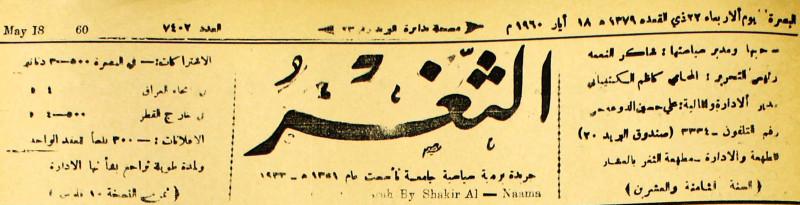 البصرة يوم الاربعاء ٢٢ ذي القعده ١٣٧٩ ه ١٨ أيار ١٩٦٠ م
مصحة مدائرة البريد رقم ٢٣
العدد ٧٤٠٢
May 18 60
صاحبها ومدير سياستها : شاكر النعمه
رئيس التحرير : المحامي كاظم
مدير الادارة والمالية : علي حسين
رقم التلفون - ٣٣٣٤ (صندوق البريد ٢٠)
المطبعة والادارة - مطبعة الثغر بالعشار
( السنة الثامنة والعشرين )
الثغر
جريدة يومية سياسية جامعة تأسست عام ١٣٥١ ه - ١٩٣٣
By Shakir Al - Naama
الاشتراكات : - في البصرة ٥٠٠-٣ دنانير
في انحاء العراق ٤
في خارج القطر ٥٠٠-٤
الاعلانات : - ٣٠٠ فلساً للعقد الواحد
ولمدة طويلة تراجع بشأنها الادارة
( ثمن النسخة ١٠ فلوس )